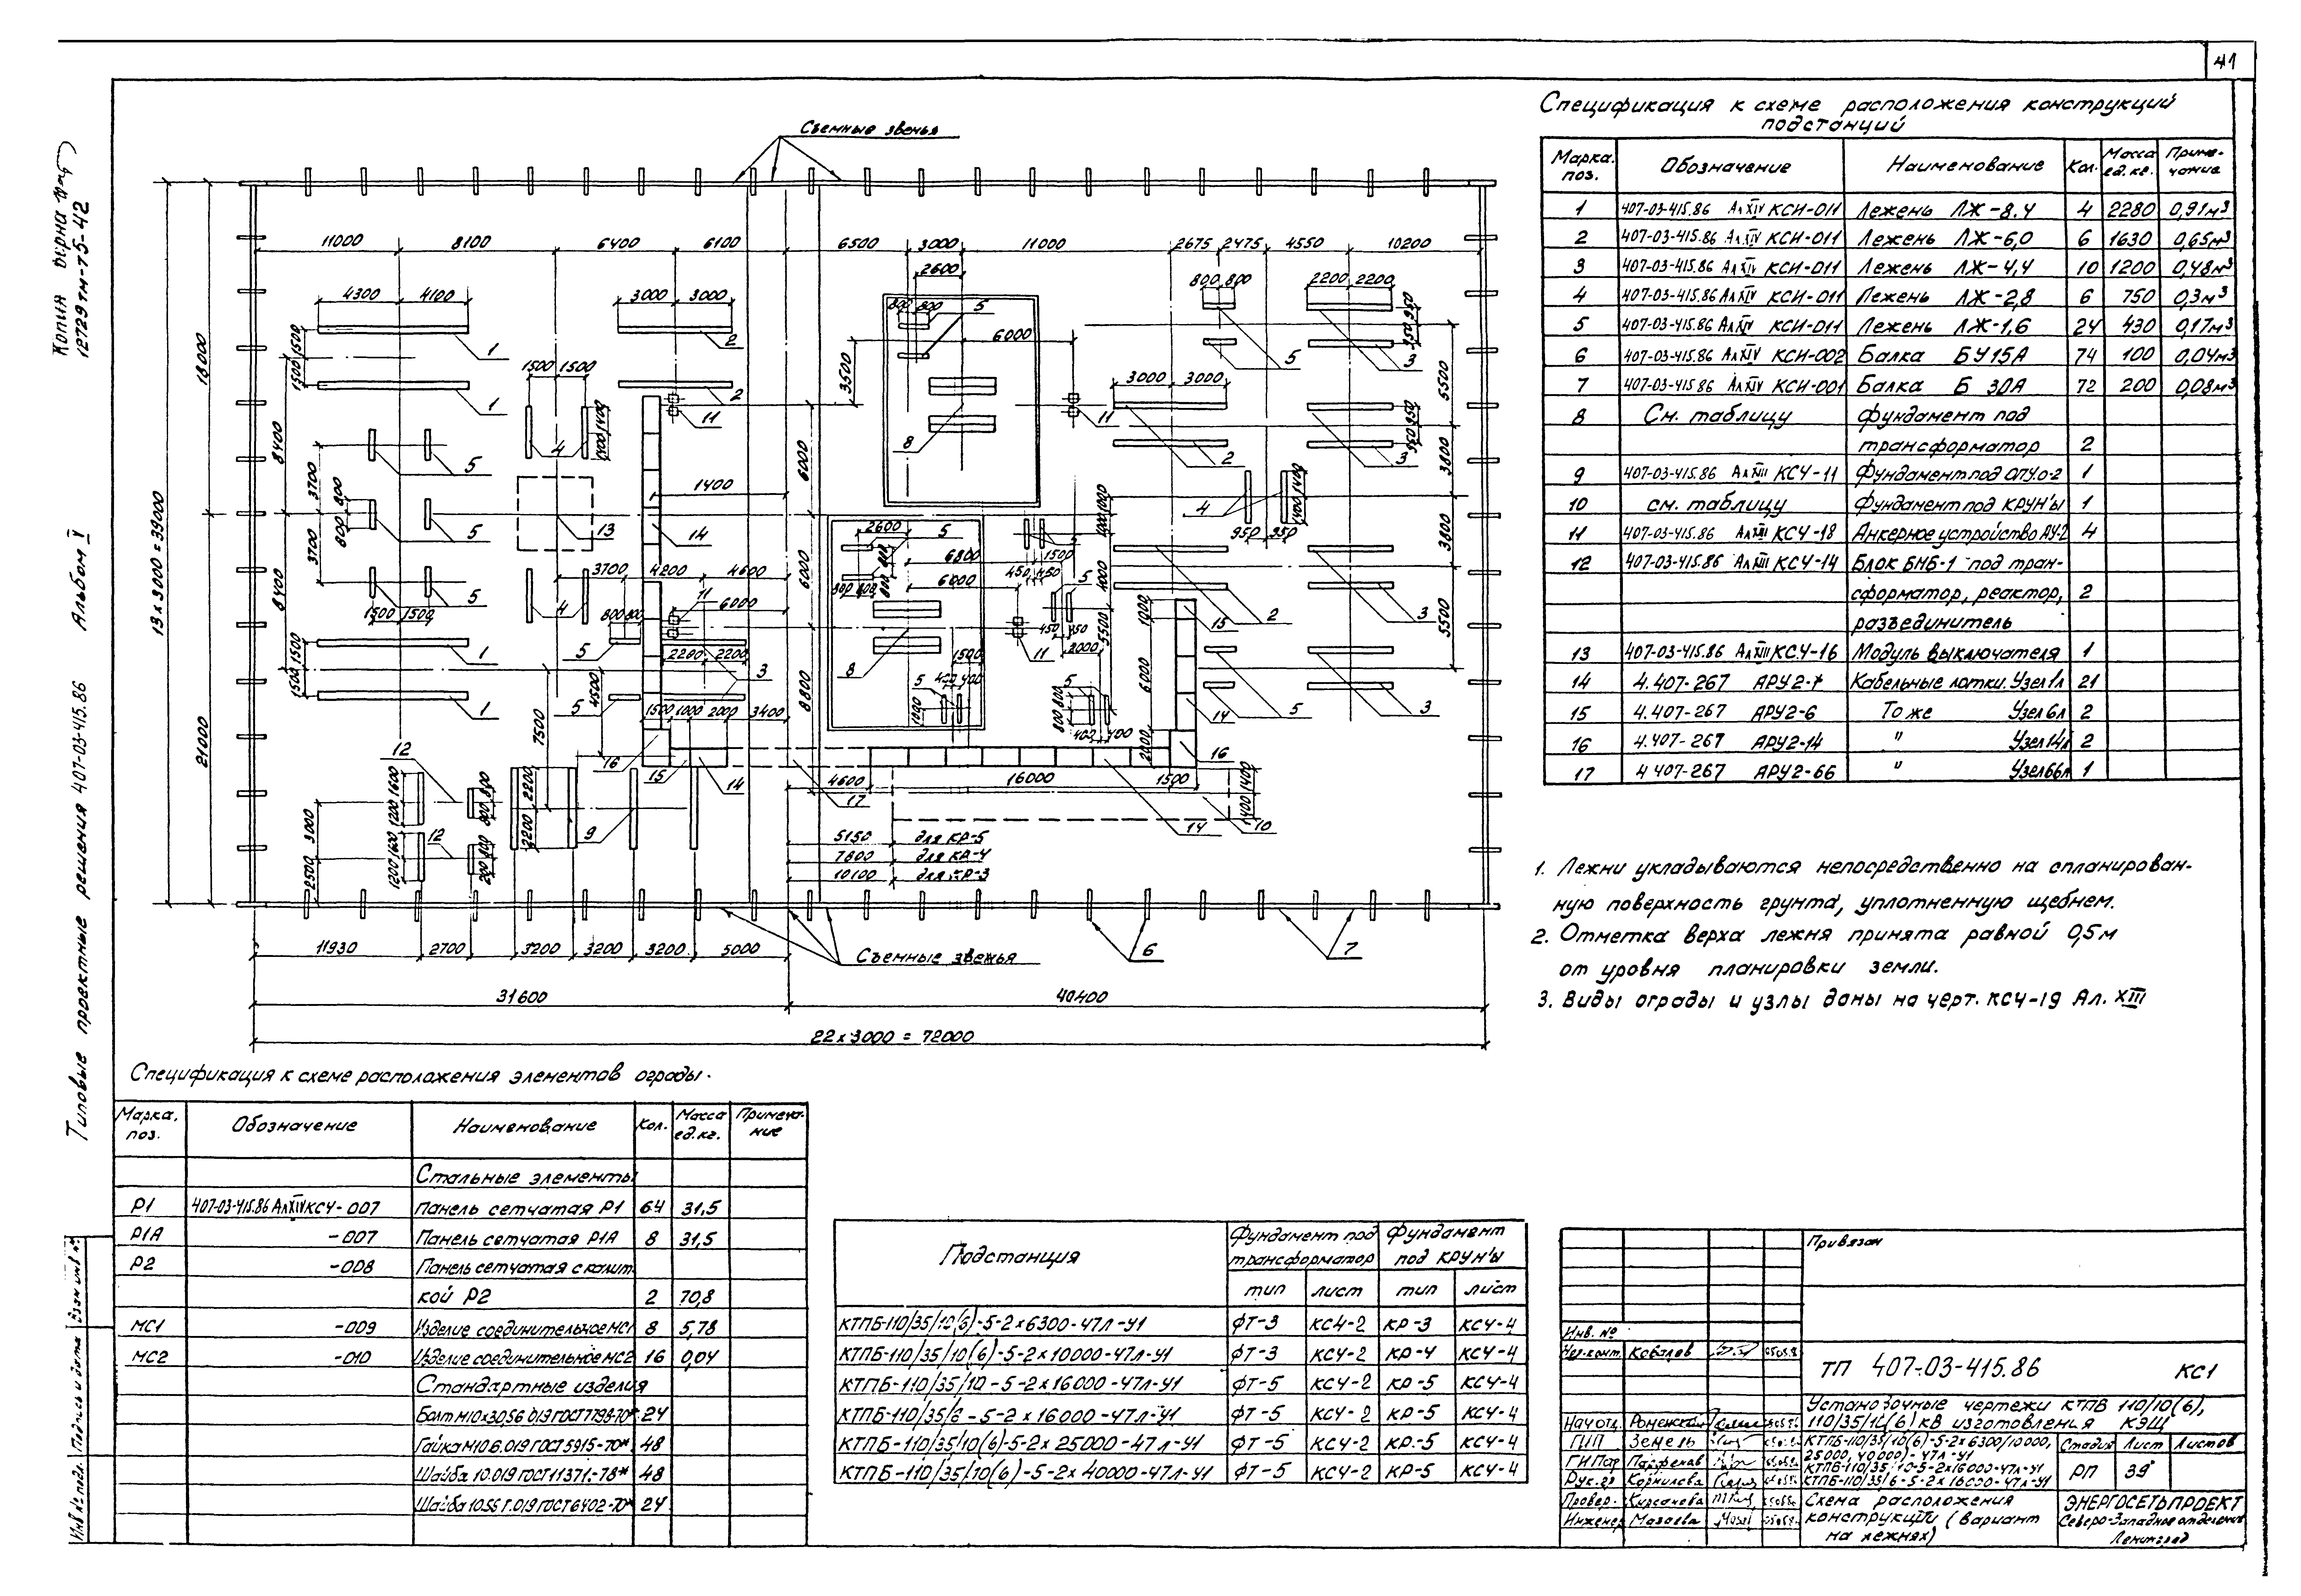 41
Копия верна
12729тм-т5-42
Альбом V
Типовые проектные решения 407-03-415.86
Взам инв №
Подпись и дата
Инв № подл.
Съемные звенья
11000 8100 6400 6100 6500 3000 11000 2675 2475 4550 10200
2600
800 800 2200 2200
4300 4100 3000 3000
800 800 5
6000
1 2 5 3
1500 1500
3000 3000
1 2 11 11
8 2 3
5 4
1400 4
5 13 14
950 950
2600 5
6800 1500
3700 4200 4600 6000 450 450
5 4 11 6000
1500 1500 800 800
15 2 3
450 450
2000
1 5 2200 2200 3 8 11
1500
5 400 400 5
1 5 1500 1000 2000 3400 14 5 3
400 400
12 16 15 14 4600 16000 1500 16
17
12 9 14 10
5150 для КР-5
7600 для КР-4
10100 для КР-3
13 х 3000 = 39000
18000
21000
8400
8400
3700
3700
3000
2500
7500
4500
3500
6000
6000
8800
5500
3800
3800
5500
11930 2700 3200 3200 3200 5000 Съемные звенья 6 7
31600 40400
22 х 3000 = 72000
Спецификация к схеме расположения конструкций
подстанций
Марка. поз. Обозначение Наименование Кол. Масса ед.кг. Приме-чание
1 407-03-415.86 Ал XIV КСИ-011 Лежень ЛЖ-8.4 4 2280 0,91м³
2 407-03-415.86 Ал XIV КСИ-011 Лежень ЛЖ-6,0 6 1630 0,65м³
3 407-03-415.86 Ал XIV КСИ-011 Лежень ЛЖ-4,4 10 1200 0,48м³
4 407-03-415.86 Ал XIV КСИ-011 Лежень ЛЖ-2,8 6 750 0,3м³
5 407-03-415.86 Ал XIV КСИ-011 Лежень ЛЖ-1,6 24 430 0,17м³
6 407-03-415.86 Ал XIV КСИ-002 Балка БУ15А 74 100 0,04м³
7 407-03-415.86 Ал XIV КСИ-001 Балка Б 30А 72 200 0,08м³
8 См. таблицу Фундамент под
трансформатор 2
9 407-03-415.86 Ал XIII КСЧ-11 Фундамент под ОПУ0-2 1
10 см. таблицу Фундамент под КРУН'ы 1
11 407-03-415.86 Ал XIII КСЧ-18 Анкерное устройство АУ-2 4
12 407-03-415.86 Ал XIII КСЧ-14 Блок БНБ-1 под тран-
сформатор, реактор, 2
разъединитель
13 407-03-415.86 Ал XIII КСЧ-16 Модуль выключателя 1
14 4.407-267 АРУ2-7 Кабельные лотки. Узел 1л 21
15 4.407-267 АРУ2-6 То же Узел 6л 2
16 4.407-267 АРУ2-14 " Узел 14л 2
17 4.407-267 АРУ2-66 " Узел 66л 1
1. Лежни укладываются непосредственно на спланирован-
ную поверхность грунта, уплотненную щебнем.
2. Отметка верха лежня принята равной 0,5м
от уровня планировки земли.
3. Виды ограды и узлы даны на черт. КСЧ-19 Ал. XIII
Спецификация к схеме расположения элементов ограды.
Марка. поз. Обозначение Наименование Кол. Масса ед.кг. Примеча-ние
Стальные элементы
Р1 407-03-415.86 Ал XIV КСЧ-007 Панель сетчатая Р1 64 31,5
Р1А -007 Панель сетчатая Р1А 8 31,5
Р2 -008 Панель сетчатая с калит
кой Р2 2 70,8
МС1 -009 Изделие соединительное МС1 8 5,78
МС2 -010 Изделие соединительное МС2 16 0,04
Стандартные изделия
Болт М10х30,56 019 ГОСТ 7798-70* 24
Гайка М10 6.019 ГОСТ 5915-70* 48
Шайба 10.019 ГОСТ 11371-78* 48
Шайба 10 65 Г.019 ГОСТ 6402-70* 24
Подстанция Фундамент под трансформатор Фундамент под КРУН'ы
тип лист тип лист
КТПБ-110/35/10(6)-5-2х6300-47л-У1 ФТ-3 КСЧ-2 КР-3 КСЧ-4
КТПБ-110/35/10(6)-5-2х10000-47л-У1 ФТ-3 КСЧ-2 КР-4 КСЧ-4
КТПБ-110/35/10-5-2х16000-47л-У1 ФТ-5 КСЧ-2 КР-5 КСЧ-4
КТПБ-110/35/6-5-2х16000-47л-У1 ФТ-5 КСЧ-2 КР-5 КСЧ-4
КТПБ-110/35/10(6)-5-2х25000-47л-У1 ФТ-5 КСЧ-2 КР-5 КСЧ-4
КТПБ-110/35/10(6)-5-2х40000-47л-У1 ФТ-5 КСЧ-2 КР-5 КСЧ-4
Привязан
Инв. №
Нор.конт. Ковалов
ТП 407-03-415.86 КС1
Установочные чертежи КТПБ 110/10(6),
110/35/10(6) кВ изготовления КЭЩ
Нач отд. Роменский
ГИП Земель
ГИПар Парфенов
Рук.гр Корнилова
Провер. Кирсанова
Инженер Мазаева
КТПБ-110/35/10(6)-5-2х6300/10000,
25000,40000)-47л-У1
КТПБ-110/35/10-5-2х16000-47л-У1
КТПБ-110/35/6-5-2х16000-47л-У1
Стадия Лист Листов
РП 39
Схема расположения
конструкций (вариант
на лежнях)
ЭНЕРГОСЕТЬПРОЕКТ
Северо-Западное отделение
Ленинград